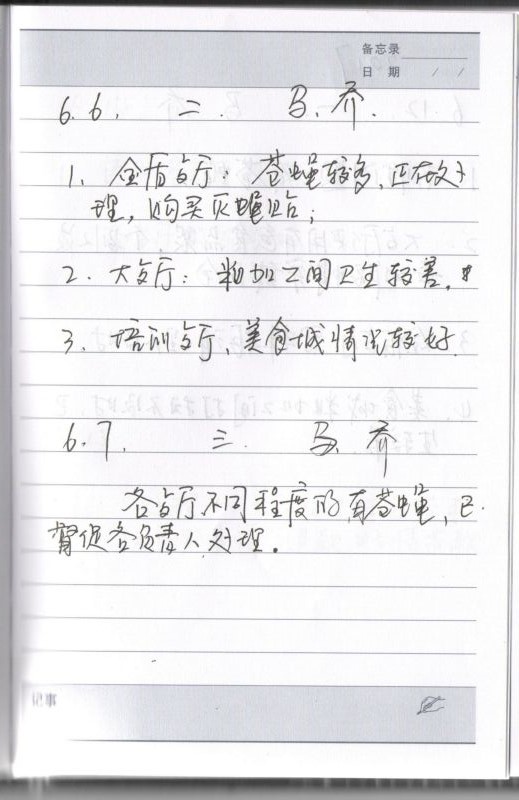 备忘录
日 期 / /
6.6. 二. 马、乔.
1、金盾歺厅：苍蝇较多,正在处
理，购买灭蝇贴；
2、大歺厅：粗加工间卫生较差。
3、培训歺厅、美食城情况较好.
6.7. 三. 马、乔
各歺厅不同程度的有苍蝇，已
督促各负责人处理。
记事